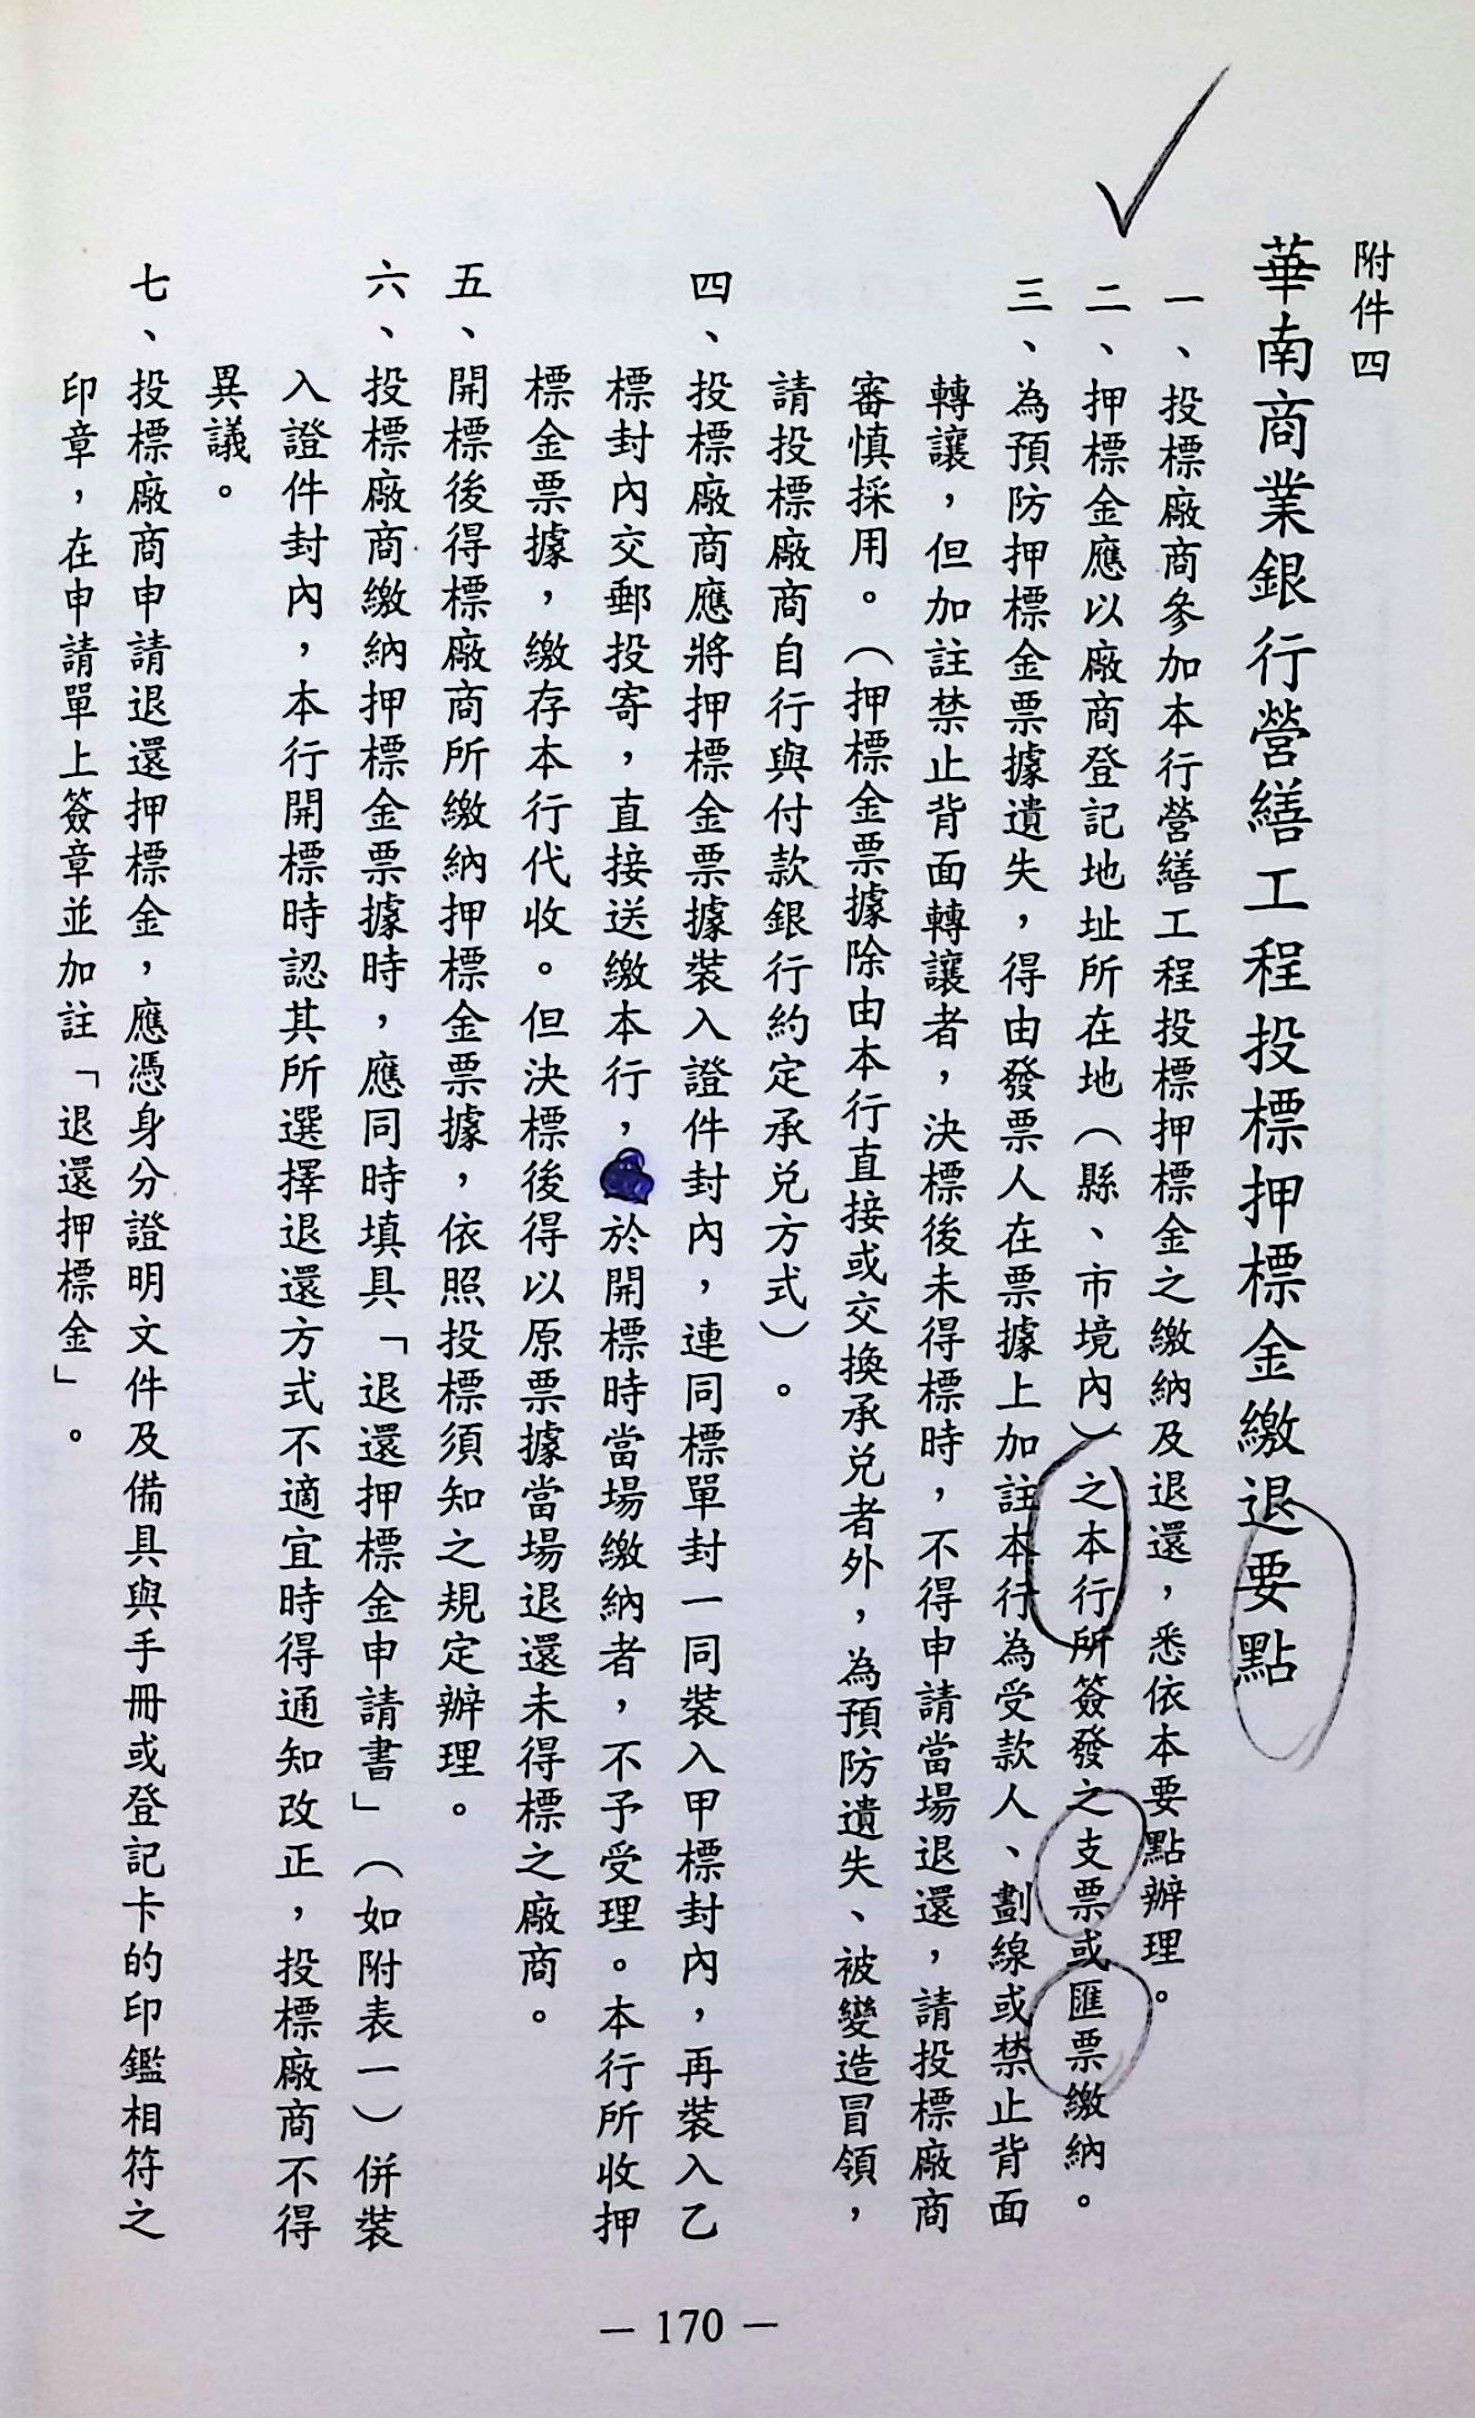 附件四
華南商業銀行營繕工程投標押標金繳退要點
一、投標廠商參加本行營繕工程投標押標金之繳納及退還，悉依本要點辦理。
二、押標金應以廠商登記地址所在地（縣、市境內）之本行所簽發之支票或匯票繳納。
三、為預防押標金票據遺失，得由發票人在票據上加註本行為受款人、劃線或禁止背面
轉讓，但加註禁止背面轉讓者，決標後未得標時，不得申請當場退還，請投標廠商
審慎採用。（押標金票據除由本行直接或交換承兌者外，為預防遺失、被變造冒領，
請投標廠商自行與付款銀行約定承兌方式）。
四、投標廠商應將押標金票據裝入證件封內，連同標單封一同裝入甲標封內，再裝入乙
標封內交郵投寄，直接送繳本行，於開標時當場繳納者，不予受理。本行所收押
標金票據，繳存本行代收。但決標後得以原票據當場退還未得標之廠商。
五、開標後得標廠商所繳納押標金票據，依照投標須知之規定辦理。
六、投標廠商繳納押標金票據時，應同時填具「退還押標金申請書」（如附表一）併裝
入證件封內，本行開標時認其所選擇退還方式不適宜時得通知改正，投標廠商不得
異議。
七、投標廠商申請退還押標金，應憑身分證明文件及備具與手冊或登記卡的印鑑相符之
印章，在申請單上簽章並加註「退還押標金」。
— 170 —